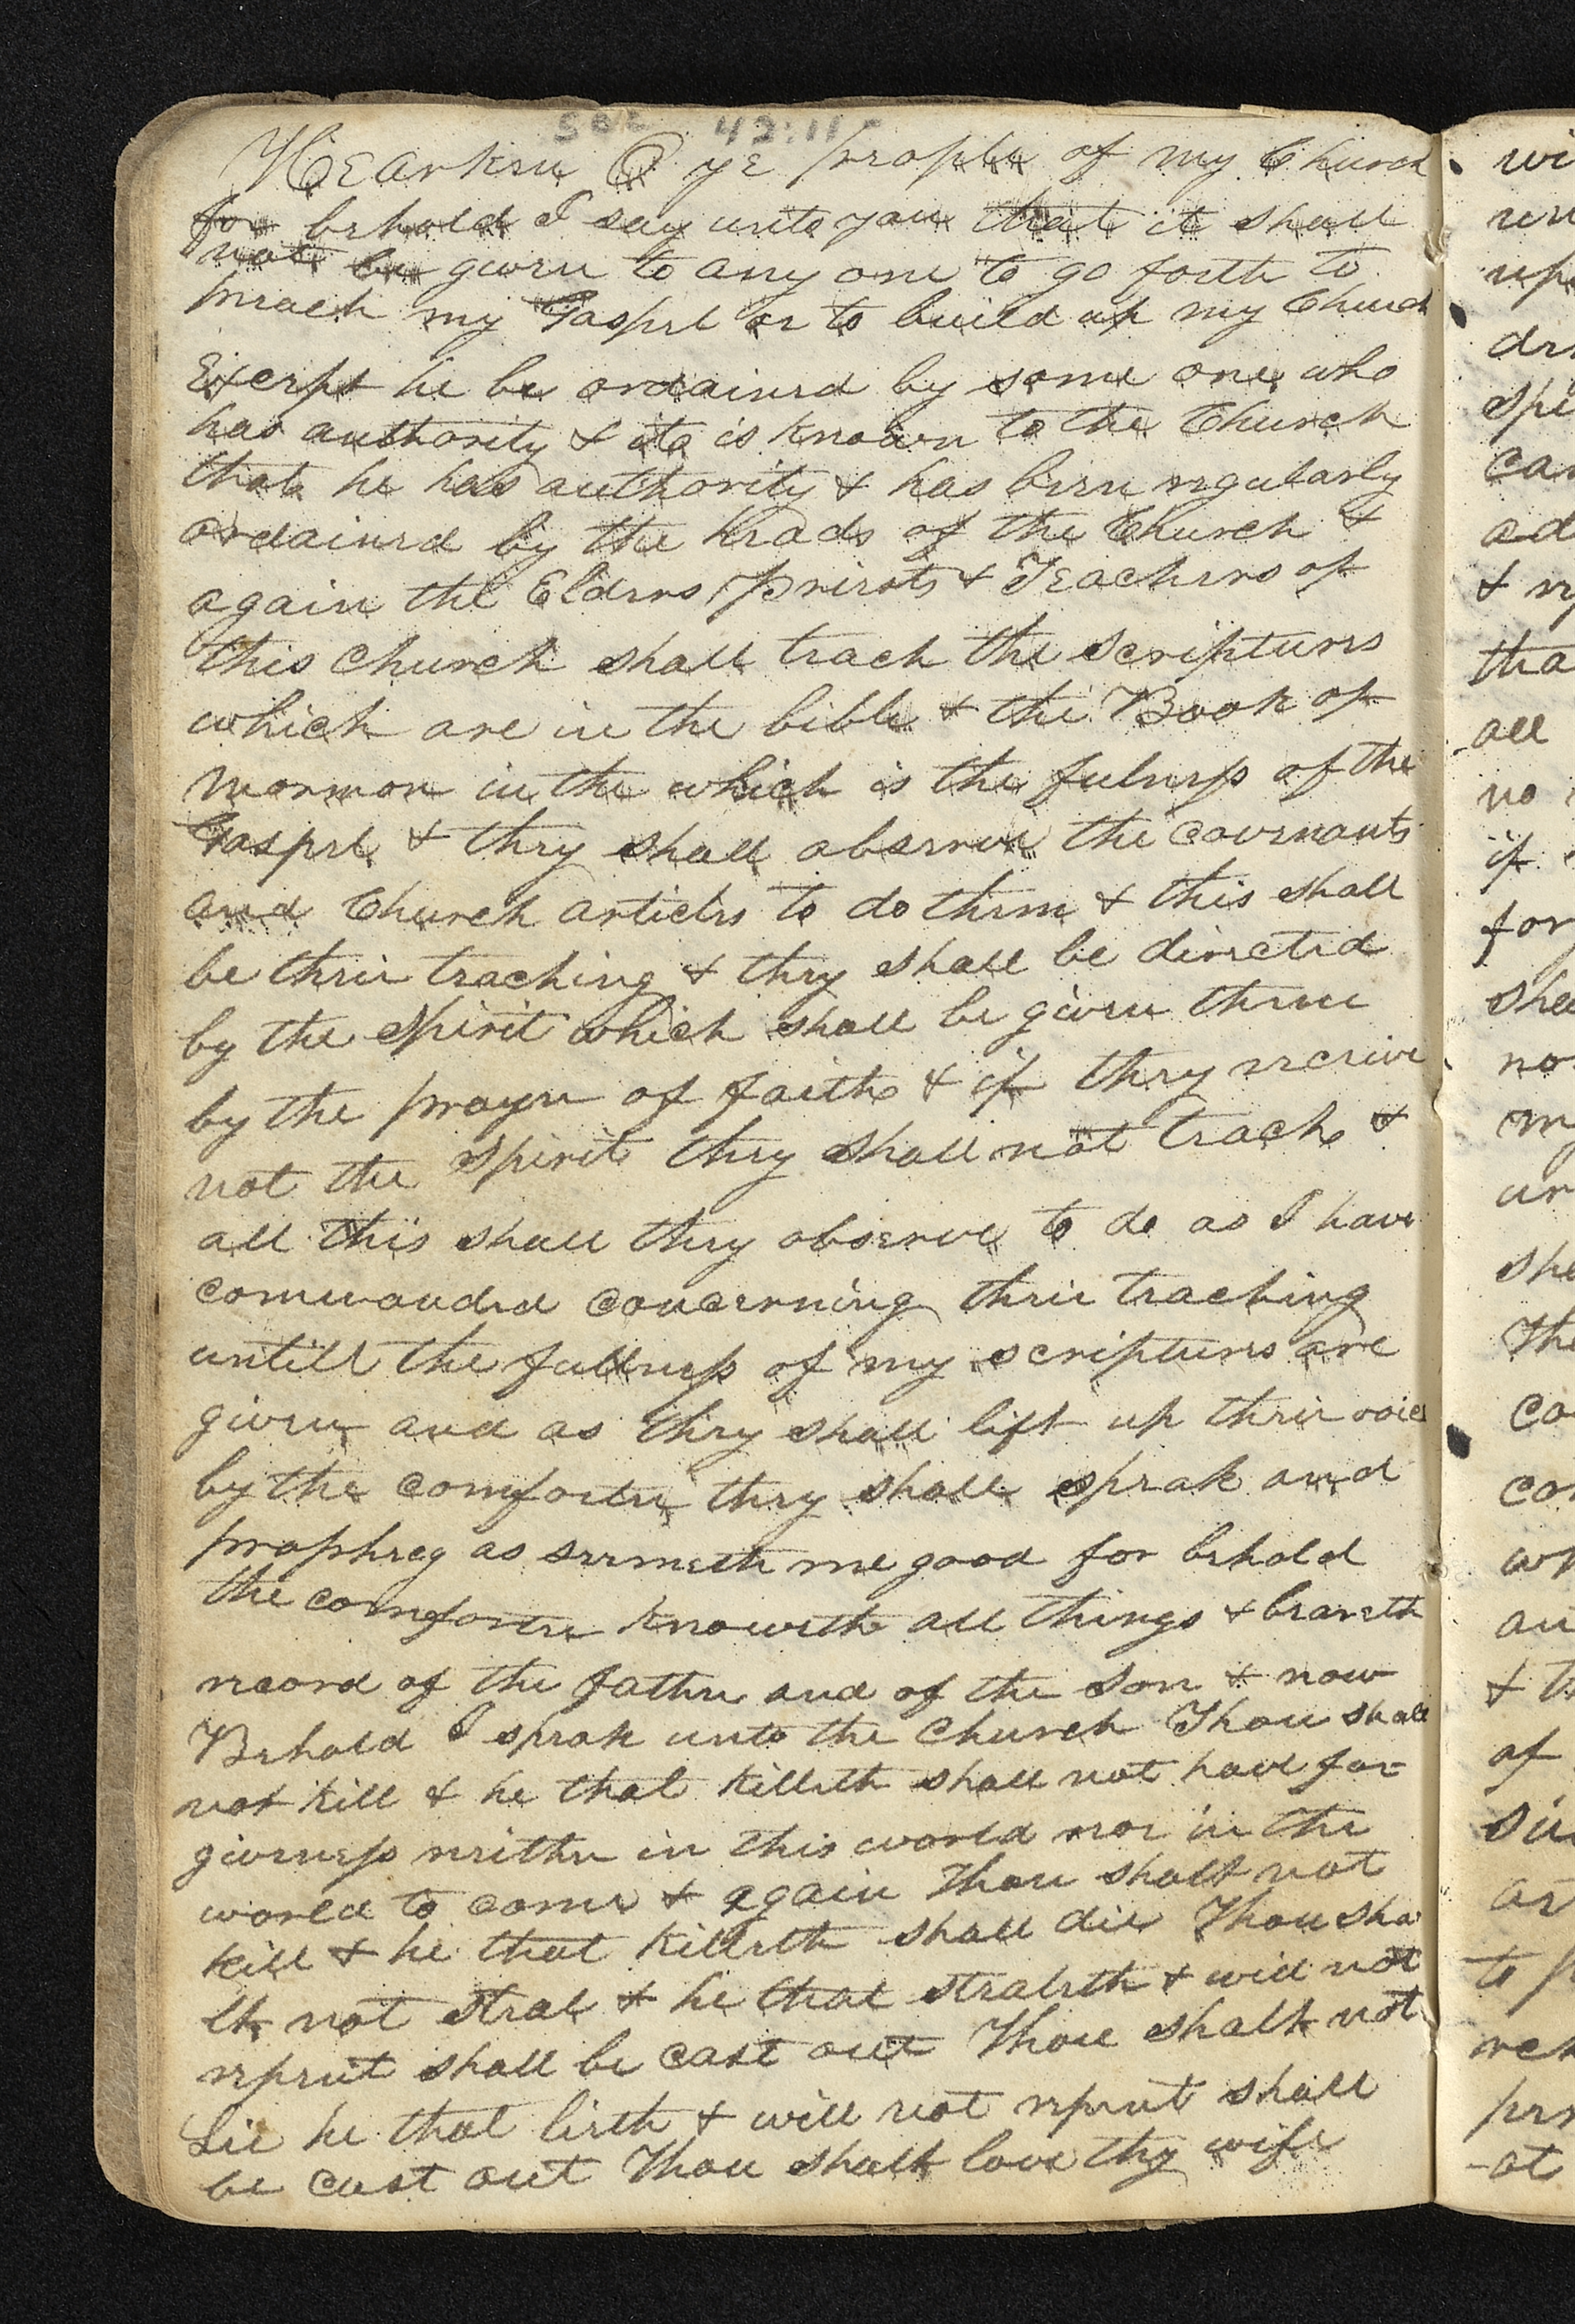 Sec 42:11-
Hearken O ye people of my Church
for behold I say unto you that it shall
not be given to any one to go forth to
preach my Gospel or to build up my Church
Except he be ordained by some one who
has authority & it is known to the Church
that he has authority & has been regularly
ordained by the heads of the Church &
again the Elders Priests & Teachers of
this Church shall teach the scriptures
which are in the bible & the Book of
Mormon in the which is the fulness of the
Gospel & they shall observe the covenants
and Church articles to do them & this shall
be their teaching & they shall be directed
by the spirit which shall be given them
by the prayer of faith & if they receive
not the spirit they shall not teach &
all this shall they observe to do as I have
commanded concerning their teaching
untill the fullness of my scriptures are
given and as they shall lift up their voice
by the comforter they shall speak and
prophecy as seemeth me good for behold
the comforter knoweth all things & beareth
record of the father and of the son & now
Behold I speak unto the Church Thou shalt
not kill & he that killeth shall not have for-
giveness neither in this world nor in the
world to come & again Thou shalt not
kill & he that killeth shall die Thou sha
lt not steal & he that stealeth & will not
repent shall be cast out Thou shalt not
Lie he that lieth & will not repent shall
be cast out Thou shalt love thy wife
wi
un
upo
der
spi
can
ad
& re
tha
all
no
if
for
she
no
my
un
she
The
co
con
wh
an
& th
of
sin
as
to p
rec
per
-at